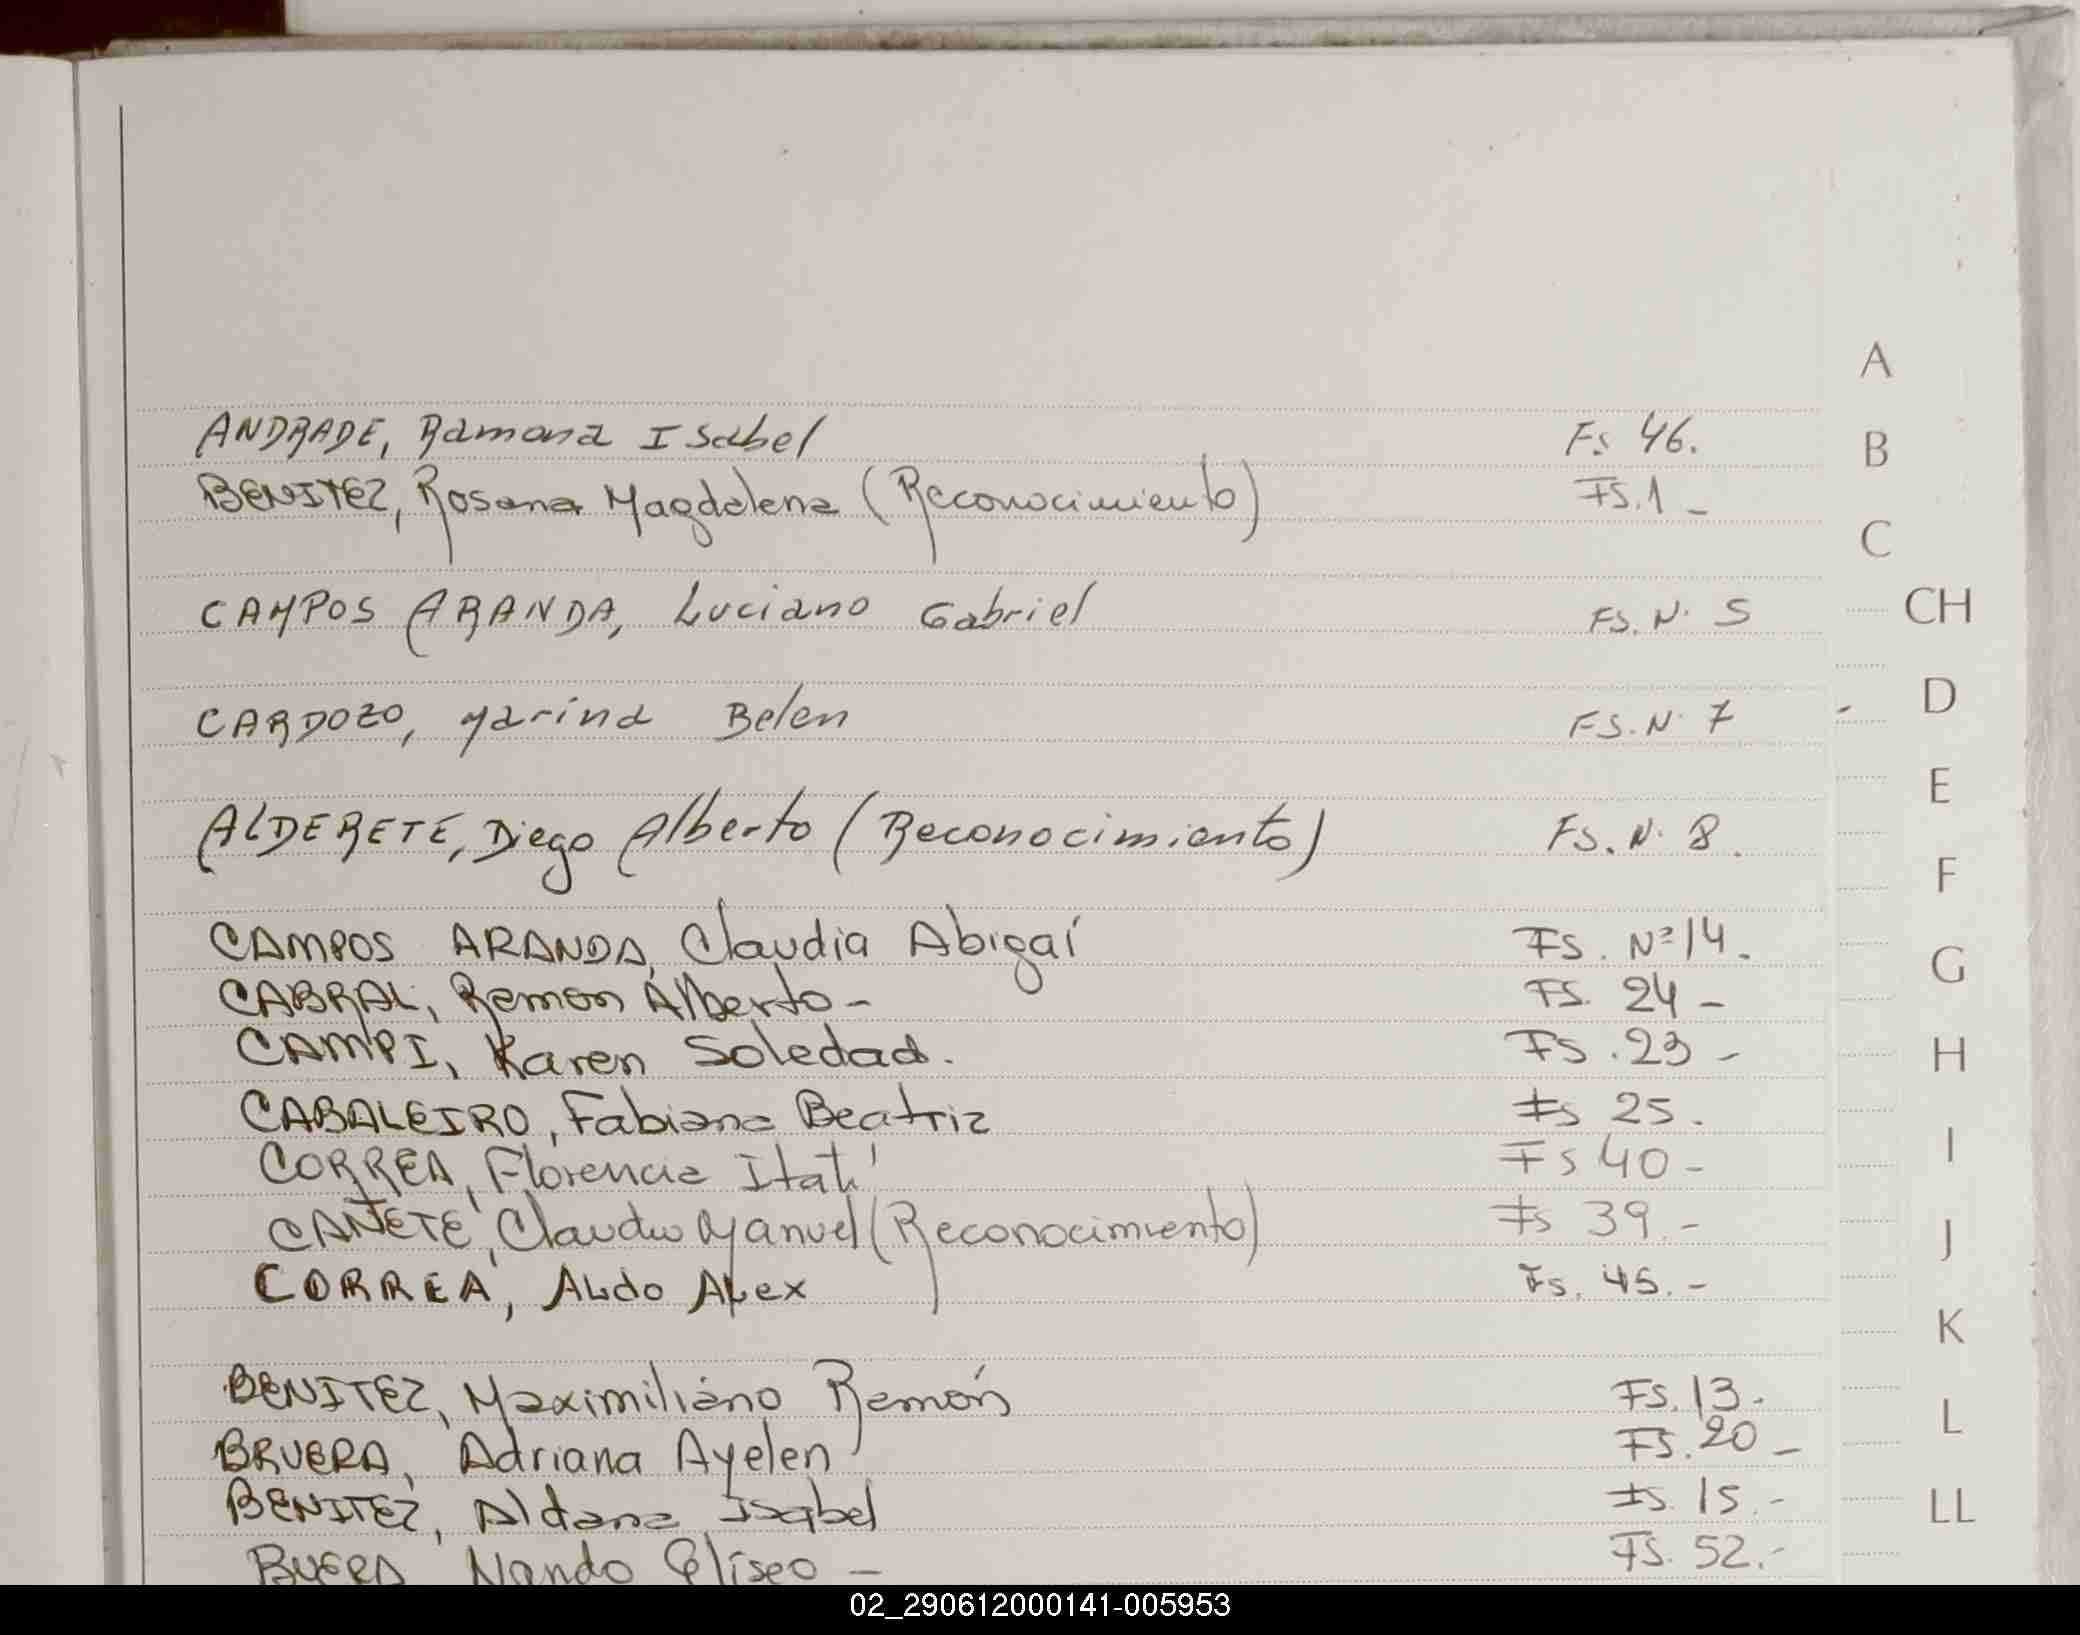 A
ANDRADE, Ramona Isabel Fs. 46.
B
BENITEZ, Rosana Magdalena (Reconocimiento) FS. 1 -
C
CAMPOS ARANDA, Luciano Gabriel FS. N. 5
CH
CARDOZO, Marina Belen FS. N. 7
D
E
ALDERETE, Diego Alberto (Reconocimiento) FS. N. 8.
F
CAMPOS ARANDA, Claudia Abigaí FS. Nº 14.
G
CABRAL, Ramon Alberto - FS. 24 -
CAMPI, Karen Soledad. FS. 23 -
H
CABALEIRO, Fabiana Beatriz Fs 25.
CORREA, Florencia Itatí Fs 40 -
I
CAÑETE, Claudio Manuel (Reconocimiento) Fs 39.-
J
CORREA, Aldo Alex Fs. 45.-
K
BENITEZ, Maximiliano Ramón FS. 13.
L
BRUERA, Adriana Ayelen FS. 20 -
BENITEZ, Aldana Isabel FS. 15.-
LL
BUERA Nando Eliseo - FS. 52.-
02_290612000141-005953